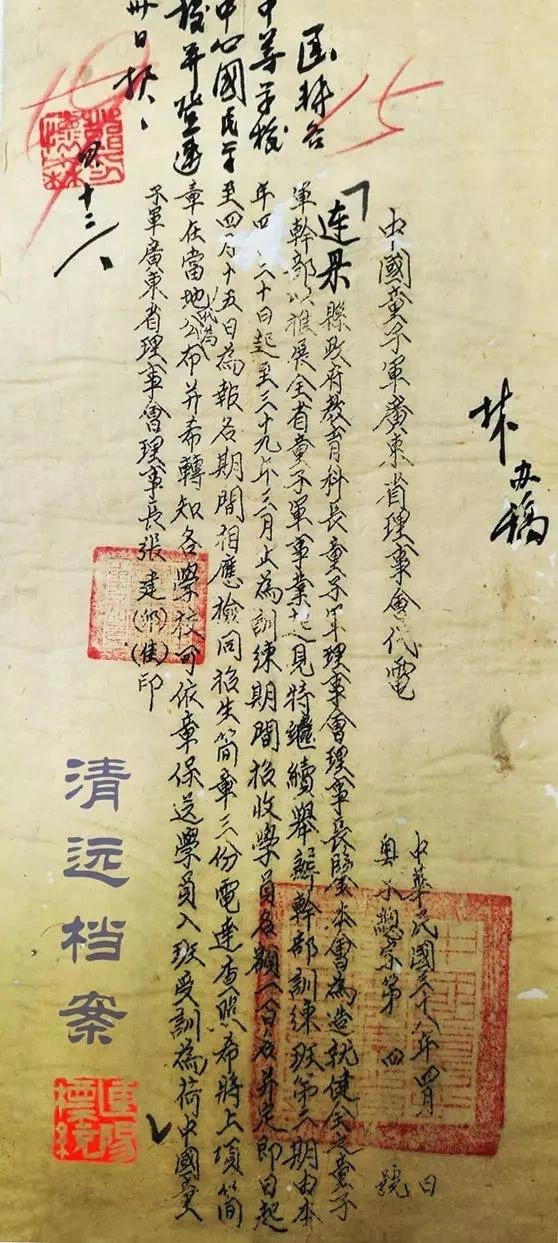 中國童子軍廣東省理事會代電
中華民國三十八年四月 日
粵子總字第 四 號
連縣縣政府教育科長童子軍理事會理事長鑒本會為造就健全之童子
軍幹部以推展全省童子軍事業起見特繼續舉辦幹部訓練班第二期由本
年四月三十日起至三十九年三月止為訓練期間招收學員名額一百名并定即日起
至四月十五日為報名期間相應檢同招生簡章三份電達查照希將上項簡
章在當地公布并希轉知各學校可依章保送學員入班受訓為荷中國童
子軍廣東省理事會理事長張建(卯佳)印
函轉各
中等學校
中心國民學
校并登連
卅日
四十二
15
19
办稿
清远档案